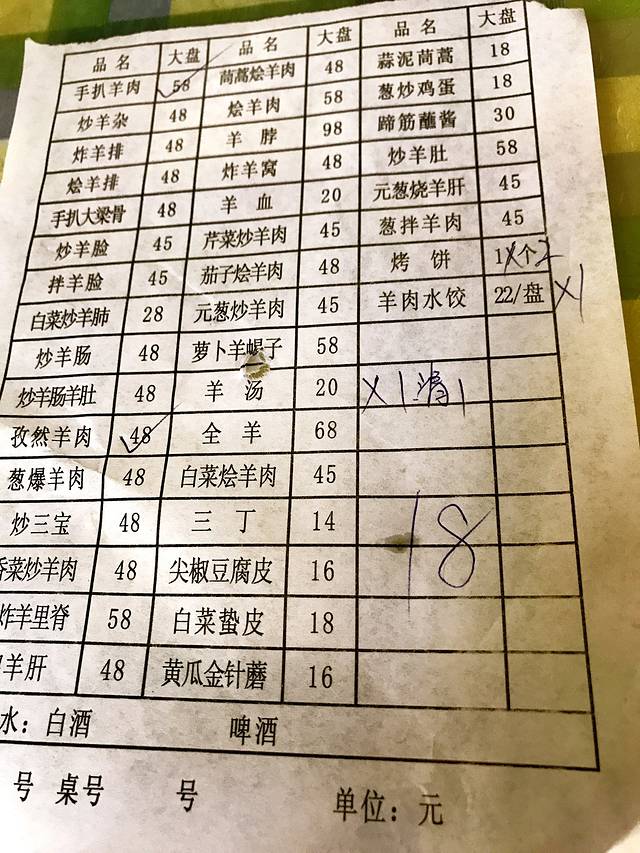 品名 大盘 品名 大盘 品名 大盘
手扒羊肉 58 茼蒿烩羊肉 48 蒜泥茼蒿 18
炒羊杂 48 烩羊肉 58 葱炒鸡蛋 18
炸羊排 48 羊脖 98 蹄筋蘸酱 30
烩羊排 48 炸羊窝 48 炒羊肚 58
手扒大梁骨 48 羊血 20 元葱烧羊肝 45
炒羊脸 45 芹菜炒羊肉 45 葱拌羊肉 45
拌羊脸 45 茄子烩羊肉 48 烤饼 1/个 2
白菜炒羊肺 28 元葱炒羊肉 45 羊肉水饺 22/盘 X1
炒羊肠 48 萝卜羊蝎子 58
炒羊肠羊肚 48 羊汤 20 X1
孜然羊肉 48 全羊 68
葱爆羊肉 48 白菜烩羊肉 45
炒三宝 48 三丁 14 18
香菜炒羊肉 48 尖椒豆腐皮 16
炸羊里脊 58 白菜蛰皮 18
羊肝 48 黄瓜金针蘑 16
水：白酒 啤酒
号 桌号 号 单位：元